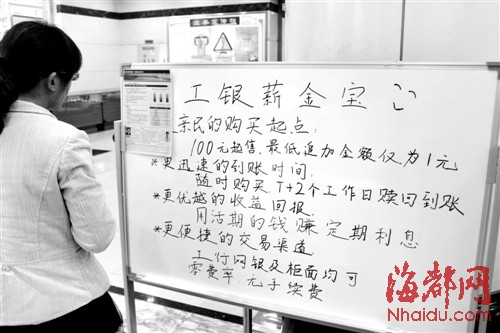 工银薪金宝
亲民的购买起点.
100元起售.最低追加金额仅为1元
*更迅速的到账时间.
随时购买.T+2个工作日赎回到账
*更优越的收益回报.
用活期的钱赚定期利息
*更便捷的交易渠道.
工行网银及柜面均可
零费率.无手续费
海都网
Nhaidu.com